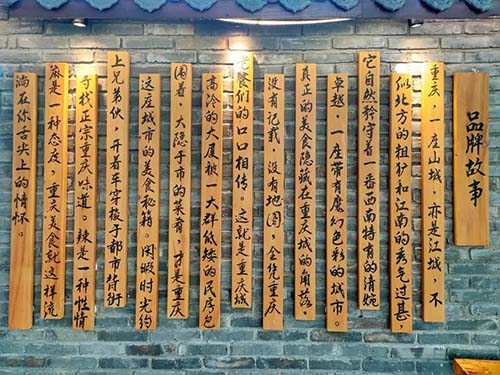 品牌故事
重庆，一座山城，亦是江城，不
似北方的粗犷和江南的秀气过甚，
它自然矜守着一番西南特有的清婉
卓越，一座带有魔幻色彩的城市。
真正的美食隐藏在重庆城的角落，
没有记载，没有地图，全凭重庆
老餐们的口口相传。这就是重庆城
高冷的大厦被一大群低矮的民房包
围着，大隐于市的菜肴，才是重庆
这座城市的美食秘籍。闲暇时光约
上兄弟伙，开着车穿梭于都市背街
寻找正宗重庆味道。辣是一种性情
麻是一种态度，重庆美食就这样流
淌在你舌尖上的情怀。